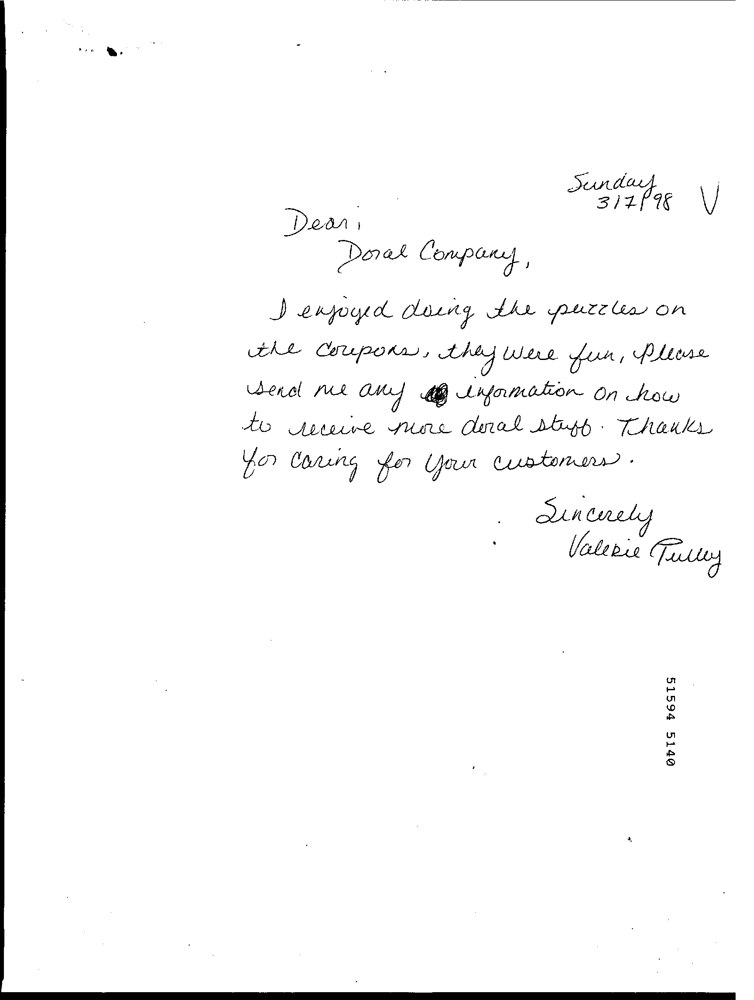 Sunday
3/7/98 V
Dear;
Doral Company,
I enjoyed doing the puzzles on
the coupons, they were fun, Please
send me any information on how
to receive more doral stuff. Thanks
for caring for your customers.
Sincerely
Valerie Tulley
51594 5140